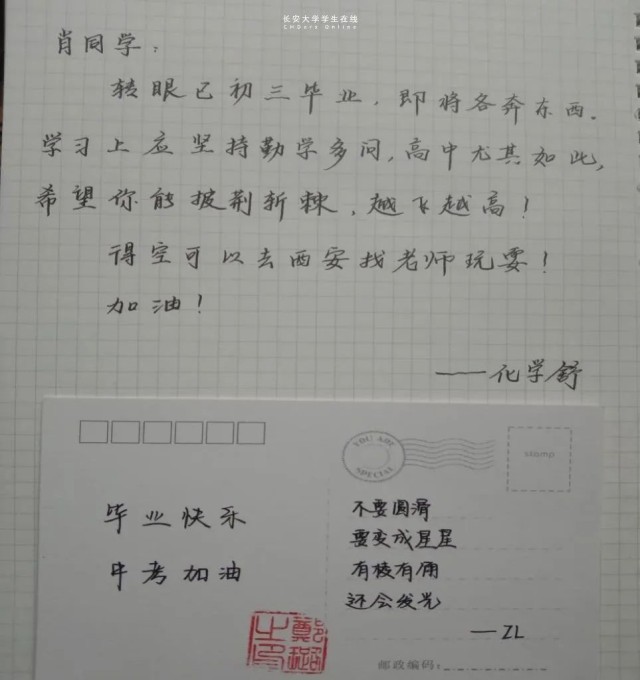 长安大学学生在线
CHDers Online
肖同学：
转眼已初三毕业，即将各奔东西。
学习上应坚持勤学多问，高中尤其如此，
希望你能披荆斩棘，越飞越高！
得空可以去西安找老师玩耍！
加油！
——化学舒
YOU ARE
SPECIAL
stamp
毕业快乐
中考加油
不要圆滑
要变成星星
有棱有角
还会发光
——ZL
邮政编码：